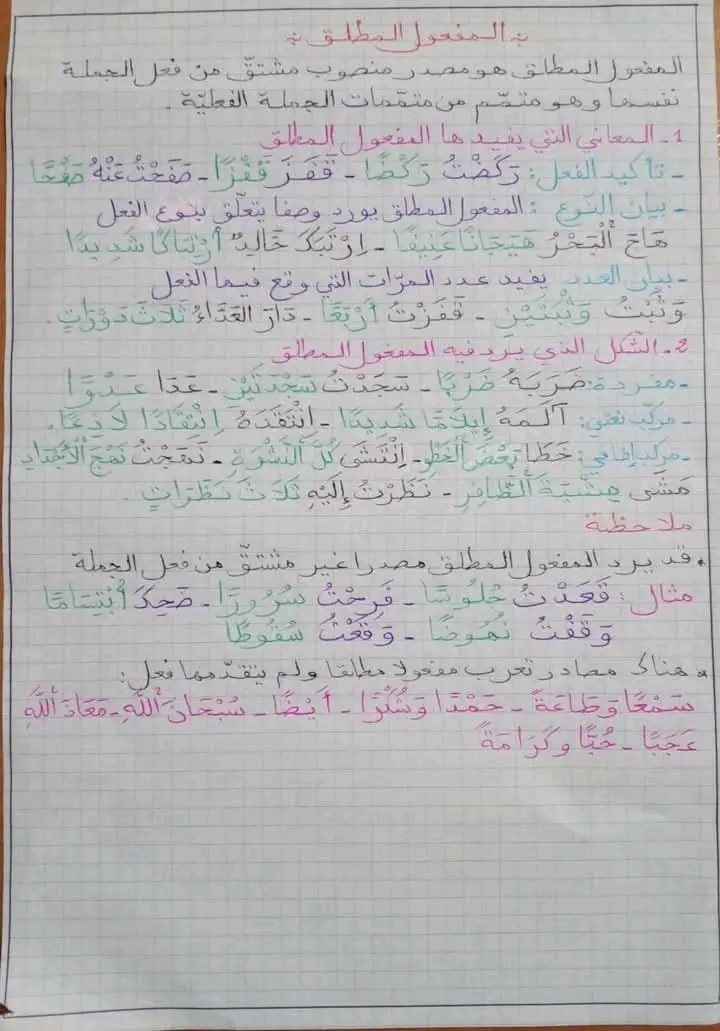 المفعول المطلق
المفعول المطلق هو مصدر منصوب مشتقّ من فعل الجملة
نفسها وهو متمّم من متمّمات الجملة الفعليّة.
1- المعاني التي يفيدها المفعول المطلق
- تأكيد الفعل: رَكَضْتُ رَكْضًا - قَفَزَ قَفْزًا - صَفَحْتُ عَنْهُ صَفْحًا
- بيان النّوع: المفعول المطلق يورد وصفا يتعلّق بنوع الفعل
هَاجَ ٱلْبَحْرُ هَيَجَانًا عَنِيفًا - اِرْتَبَكَ خَالِدٌ ٱرْتِبَاكًا شَدِيدًا
- بيان العدد يفيد عدد المرّات التي وقع فيها الفعل
وَثَبْتُ وَثْبَتَيْنِ - قَفَزْتُ أَرْبَعًا - دَارَ العَدَّاءُ ثَلَاثَ دَوْرَاتٍ.
2- الشّكل الذي يرد فيه المفعول المطلق
- مفردة: ضَرَبَهُ ضَرْبًا - سَجَدْتُ سَجْدَتَيْنِ - عَدَا عَدْوًا
- مركّب نعتي: آلَمَهُ إِيلَامًا شَدِيدًا - انْتَقَدَهُ اِنْتِقَادًا لَاذِعًا.
- مركب إضافي: خَطَا بَعْضَ ٱلْخَطْوِ - اِنْتَشَى كُلَّ ٱلنَّشْوَةِ - نَهَجْتُ نَهْجَ ٱلْأَجْدَادِ
مَشَى مِشْيَةَ ٱلظَّافِرِ - نَظَرْتُ إِلَيْهِ ثَلَاثَ نَظَرَاتٍ.
ملاحظة
• قد يرد المفعول المطلق مصدرا غير مشتقّ من فعل الجملة
مثال: قَعَدْتُ جُلُوسًا - فَرِحْتُ سُرُورًا - ضَحِكَ ٱبْتِسَامًا
وَقَفْتُ نُهُوضًا - وَقَعْتُ سُقُوطًا
• هناك مصادر تعرب مفعولا مطلقا ولم يتقدّمها فعل:
سَمْعًا وَطَاعَةً - حَمْدًا وَشُكْرًا - أَيْضًا - سُبْحَانَ ٱللَّهِ - مَعَاذَ ٱللَّهِ
عَجَبًا - حُبًّا وكَرَامَةً